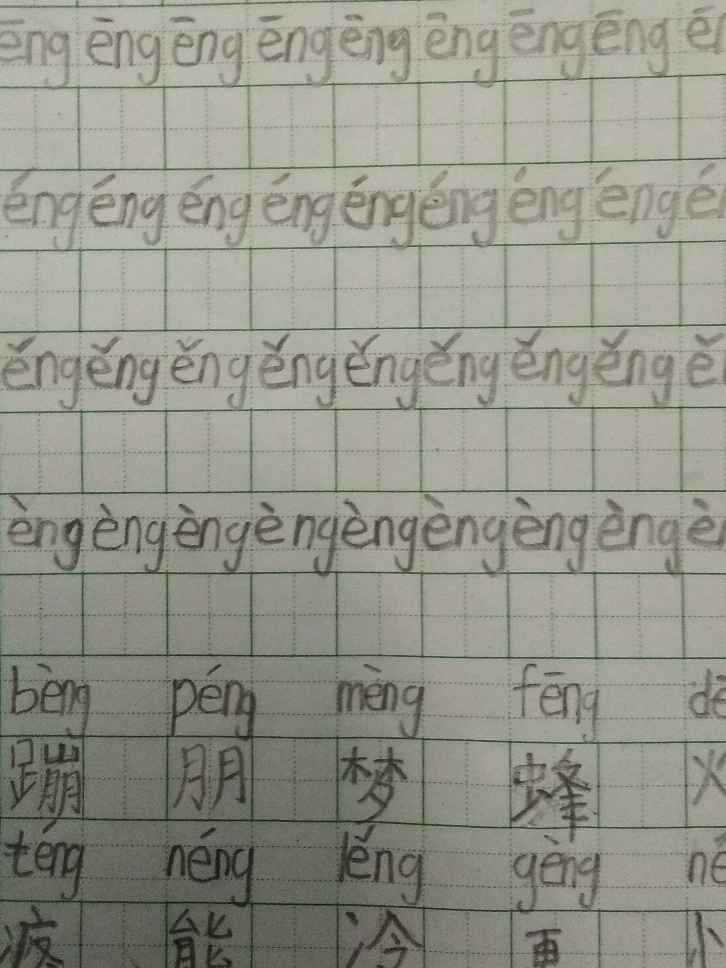 ēng ēng ēng ēng ēng ēng ēng ēng
éng éng éng éng éng éng éng éng
ěng ěng ěng ěng ěng ěng ěng ěng
èng èng èng èng èng èng èng èng
bèng péng mèng fēng
蹦 朋 梦 蜂
téng néng lěng gèng
疼 能 冷 更